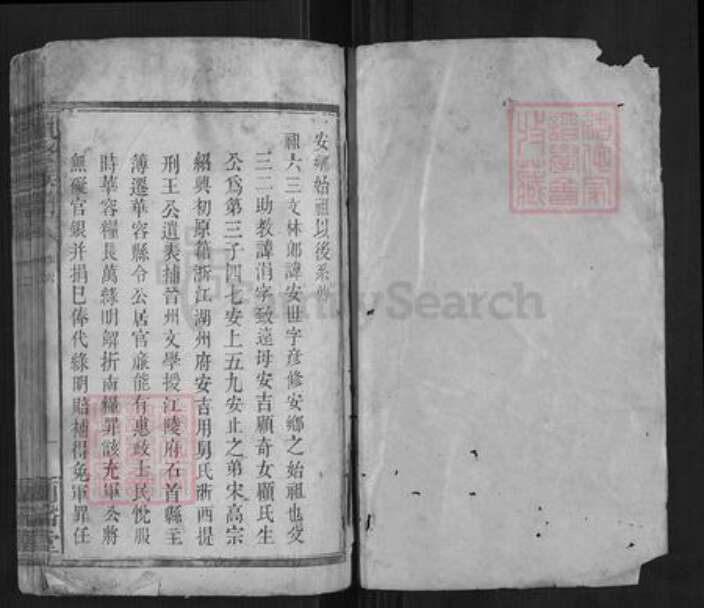 安鄉始祖以後系
祖六三文林郎諱安世字彦修安鄉之始祖也父
三二助教諱涓字致遠母安吉顧奇女顧氏生
公爲第三子四七安上五九安止之弟宋高宗
紹興初原籍浙江湖州府安吉用舅氏浙西提
刑王公遺表捕首州文學授江陵府石首縣主
簿遷華容縣令公居官廉能有惠政士民悅服
時華容糧長萬緣明解折南糧罪該充軍公將
無礙官銀并捐已俸代緣明賠補得免軍罪任
FamilySearch